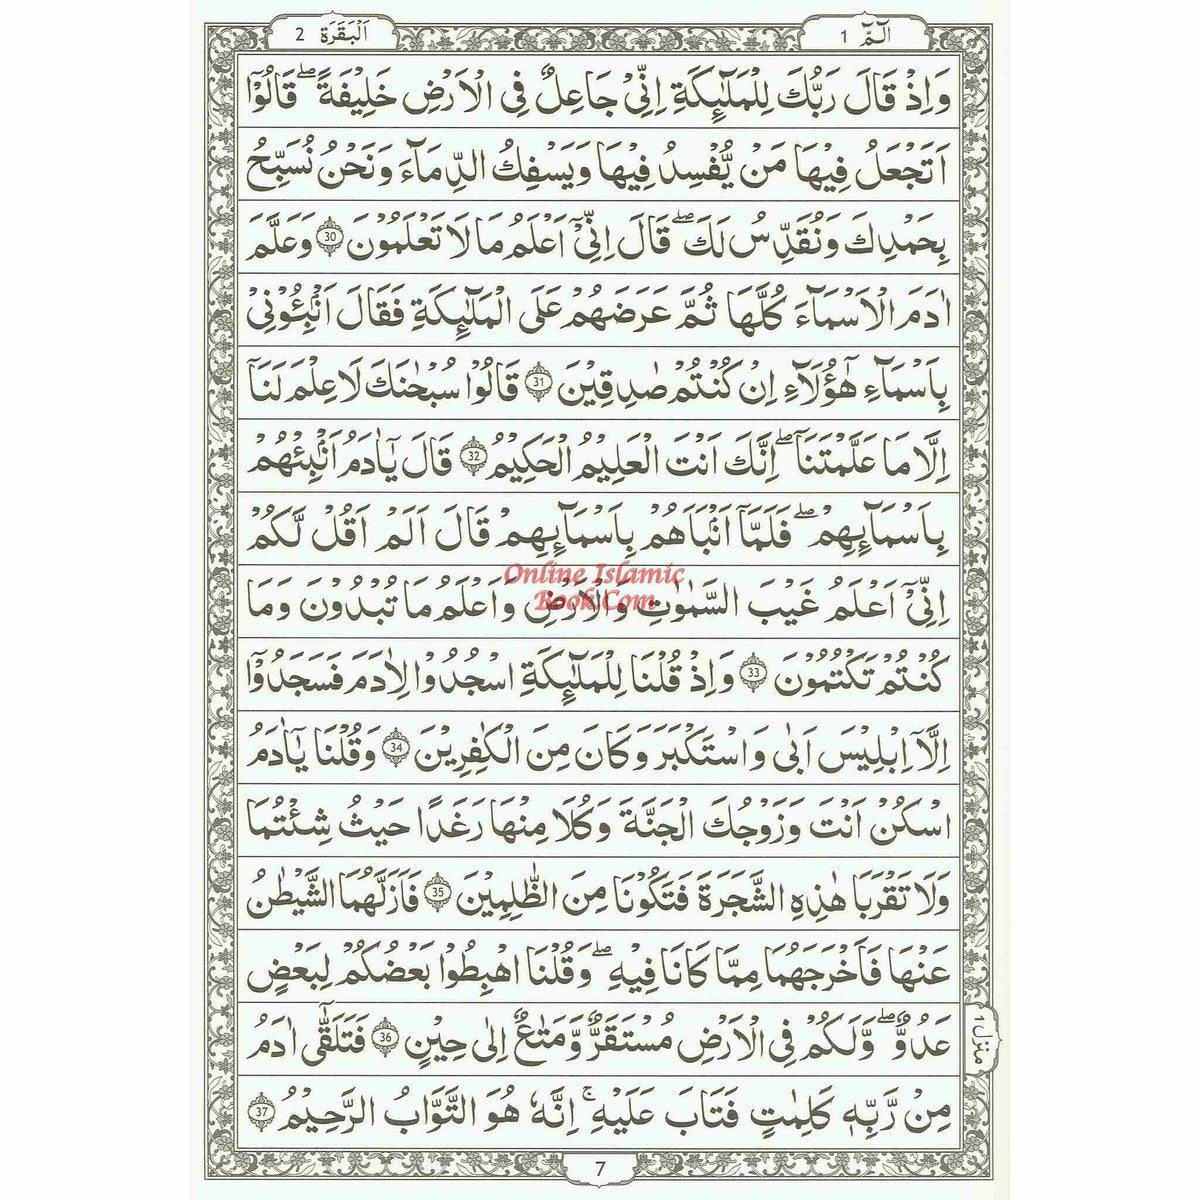 الٓمّٓ 1
اَلْبَقَرَة 2
وَاِذْ قَالَ رَبُّكَ لِلْمَلٰٓئِكَةِ اِنِّیْ جَاعِلٌ فِی الْاَرْضِ خَلِیْفَةً ؕ قَالُوْۤا
اَتَجْعَلُ فِیْهَا مَنْ یُّفْسِدُ فِیْهَا وَیَسْفِكُ الدِّمَآءَ وَنَحْنُ نُسَبِّحُ
بِحَمْدِكَ وَنُقَدِّسُ لَكَ ۖ قَالَ اِنِّیْۤ اَعْلَمُ مَا لَا تَعْلَمُوْنَ 30 وَعَلَّمَ
اٰدَمَ الْاَسْمَآءَ كُلَّهَا ثُمَّ عَرَضَهُمْ عَلَی الْمَلٰٓئِكَةِ فَقَالَ اَنْۢبِـُٔوْنِیْ
بِاَسْمَآءِ هٰۤؤُلَآءِ اِنْ كُنْتُمْ صٰدِقِیْنَ 31 قَالُوْا سُبْحٰنَكَ لَا عِلْمَ لَنَاۤ
اِلَّا مَا عَلَّمْتَنَا ۖ اِنَّكَ اَنْتَ الْعَلِیْمُ الْحَكِیْمُ 32 قَالَ یٰۤاٰدَمُ اَنْۢبِئْهُمْ
بِاَسْمَآئِهِمْ ۖ فَلَمَّاۤ اَنْۢبَاَهُمْ بِاَسْمَآئِهِمْ قَالَ اَلَمْ اَقُلْ لَّكُمْ
اِنِّیْۤ اَعْلَمُ غَیْبَ السَّمٰوٰتِ وَالْاَرْضِ وَاَعْلَمُ مَا تُبْدُوْنَ وَمَا
Online Islamic
Book.Com
كُنْتُمْ تَكْتُمُوْنَ 33 وَاِذْ قُلْنَا لِلْمَلٰٓئِكَةِ اسْجُدُوْا لِاٰدَمَ فَسَجَدُوْۤا
اِلَّاۤ اِبْلِیْسَ اَبٰی وَاسْتَكْبَرَ وَكَانَ مِنَ الْكٰفِرِیْنَ 34 وَقُلْنَا یٰۤاٰدَمُ
اسْكُنْ اَنْتَ وَزَوْجُكَ الْجَنَّةَ وَكُلَا مِنْهَا رَغَدًا حَیْثُ شِئْتُمَا
وَلَا تَقْرَبَا هٰذِهِ الشَّجَرَةَ فَتَكُوْنَا مِنَ الظّٰلِمِیْنَ 35 فَاَزَلَّهُمَا الشَّیْطٰنُ
عَنْهَا فَاَخْرَجَهُمَا مِمَّا كَانَا فِیْهِ ۖ وَقُلْنَا اهْبِطُوْا بَعْضُكُمْ لِبَعْضٍ
عَدُوٌّ ۖ وَّلَكُمْ فِی الْاَرْضِ مُسْتَقَرٌّ وَّمَتَاعٌ اِلٰی حِیْنٍ 36 فَتَلَقّٰۤی اٰدَمُ
مِنْ رَّبِّهٖ كَلِمٰتٍ فَتَابَ عَلَیْهِ ۚ اِنَّهٗ هُوَ التَّوَّابُ الرَّحِیْمُ 37
منزل 1
7